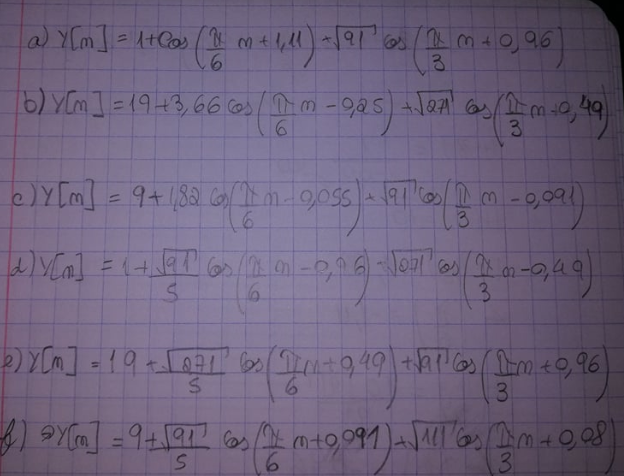 a) Y[n] = 1+cos(π/6 n+1,11) + √91 cos(π/3 n+0,96)
b) Y[n] = 19+3,66 cos(π/6 n-0,25) + √271 cos(π/3 n+0,49)
c) Y[n] = 9+1,82 cos(π/6 n-0,055) + √91 cos(π/3 n-0,091)
d) Y[n] = 1+√91/5 cos(π/6 n-0,96) + √271 cos(π/3 n-0,49)
e) Y[n] = 19+√271/5 cos(π/6 n+0,49) + √91 cos(π/3 n+0,96)
f) Y[n] = 9+√91/5 cos(π/6 n+0,091) + √111 cos(π/3 n+0,08)